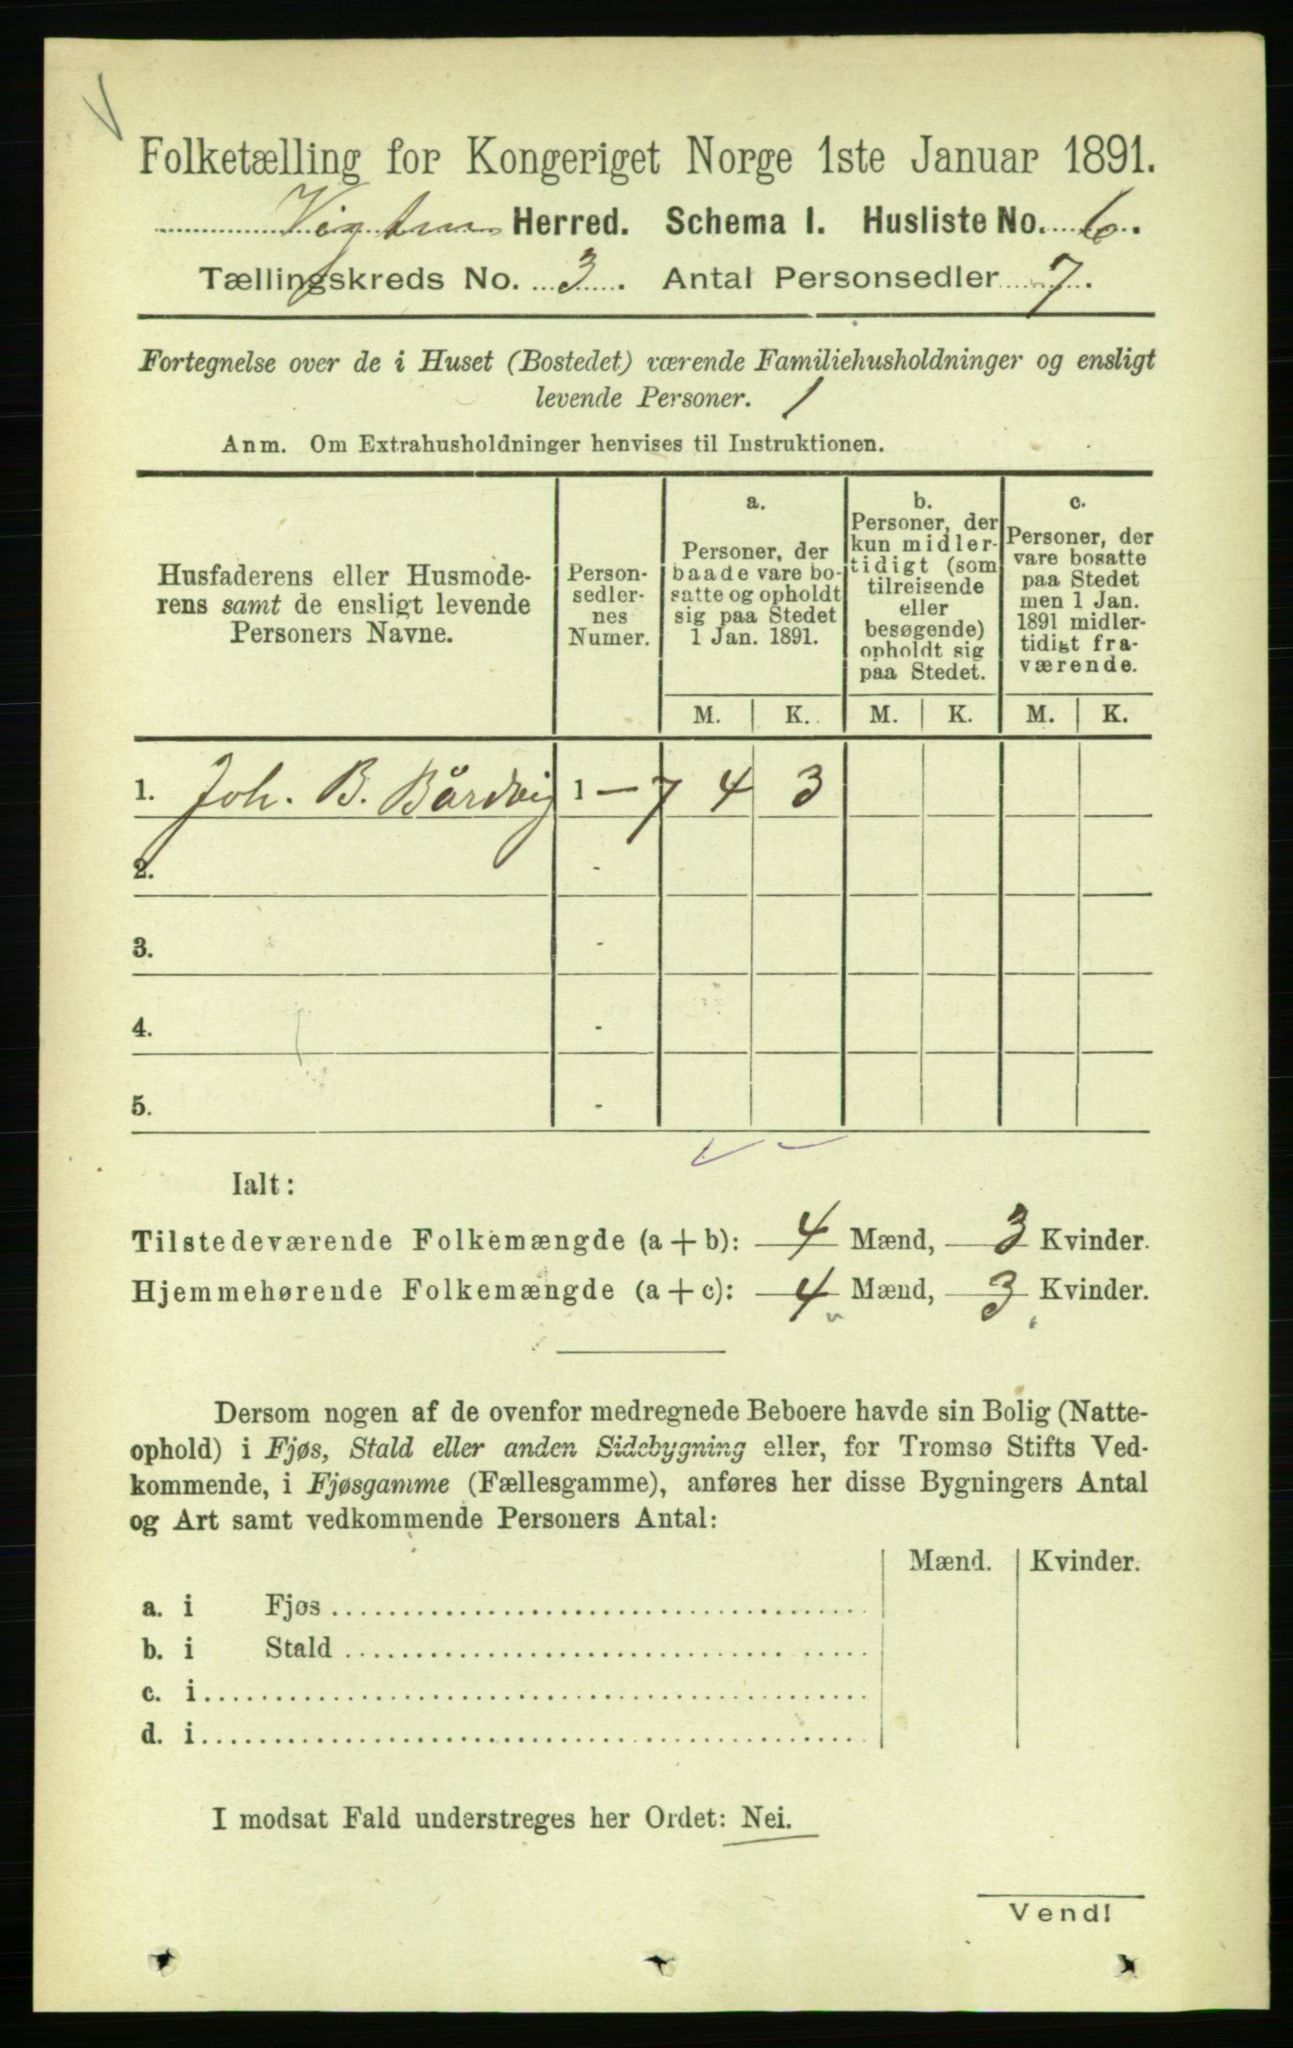 Folketælling for Kongeriget Norge 1ste Januar 1891.
Vigten Herred. Schema I. Husliste No. 6.
Tællingskreds No. 3. Antal Personsedler 7.
Fortegnelse over de i Huset (Bostedet) værende Familiehusholdninger og ensligt
levende Personer. 1
Anm. Om Extrahusholdninger henvises til Instruktionen.
Husfaderens eller Husmode-
rens samt de ensligt levende
Personers Navne.
Person-
sedler-
nes
Numer.
a.
Personer, der
baade vare bo-
satte og opholdt
sig paa Stedet
1 Jan. 1891.
b.
Personer, der
kun midler-
tidigt (som
tilreisende
eller
besøgende)
opholdt sig
paa Stedet.
c.
Personer, der
vare bosatte
paa Stedet
men 1 Jan.
1891 midler-
tidigt fra-
værende.
M. K. M. K. M. K.
1. Joh. B. Bårdvig 1 – 7 4 3
2. -
3. -
4. -
5. -
Ialt:
Tilstedeværende Folkemængde (a + b): 4 Mænd, 3 Kvinder.
Hjemmehørende Folkemængde (a + c): 4 Mænd, 3 Kvinder.
Dersom nogen af de ovenfor medregnede Beboere havde sin Bolig (Natte-
ophold) i Fjøs, Stald eller anden Sidebygning eller, for Tromsø Stifts Ved-
kommende, i Fjøsgamme (Fællesgamme), anføres her disse Bygningers Antal
og Art samt vedkommende Personers Antal:
Mænd. Kvinder.
a. i Fjøs
b. i Stald
c. i
d. i
I modsat Fald understreges her Ordet: Nei.
Vend!